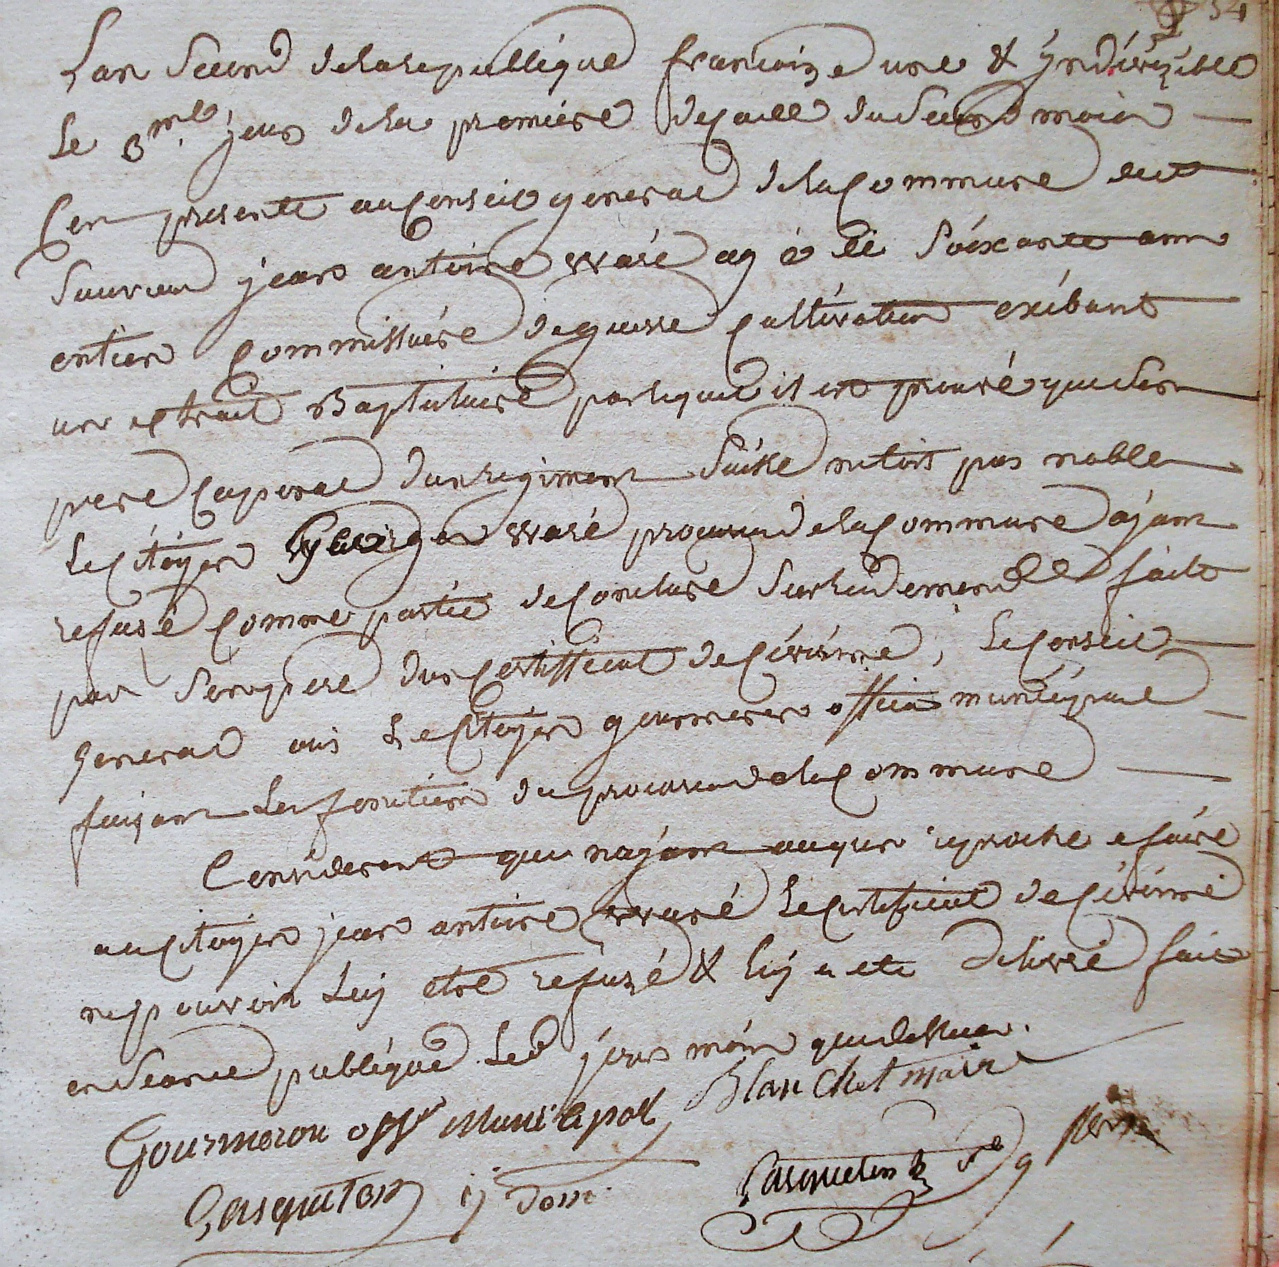 54
Lan Second de la republique francoize une & yndivizible
Le 3me jour de la premiere decade du Second mois
Cen presente au Conseil general de la Commune dud
Sauveur jean antoine waré agé de Soixante ans
entier Commissaire de guerre Cultivateur exibant
un extrait Baptistaire par lequel il est prouvé que son
pere Caporal dun regiment Suisse netoit pas noble
Le Citoyen waré procureur de la Commune ajant
refusé Comme partie de Conclure Sur la demende faite
par Son pere dun Certifficat de Civisme, Le Conseil
general ouis Le Citoyen gourmeron officier municipal
faisant Les fonction du procureur de la Commune
Considerant que najant aucun reproche a faire
au Citoyen jean antoine waré Le Certificat de Civisme
ne pouvoir Luy etre refuzé & luy a ete delivré fait
en Seance publique Led jour mois que dessus.
Gourmeron offr Municipal Blanchet maire
Gasqueton Gasqueton